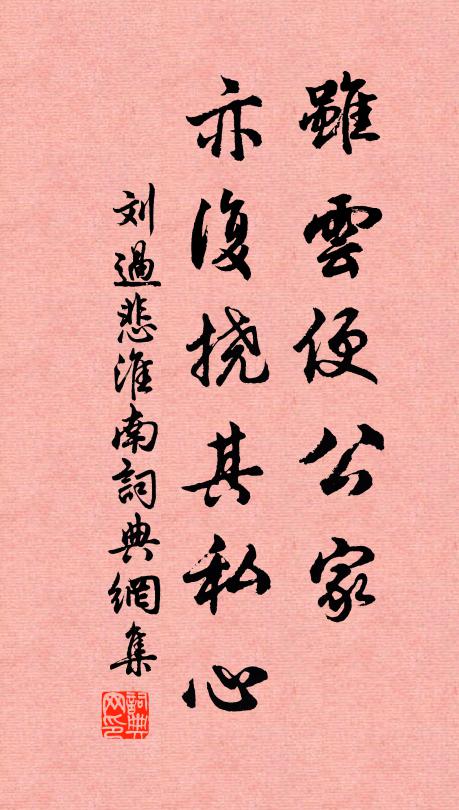 雖雲便公家
亦復挠其私心
刘過悲淮南詞典網集
詞典网印